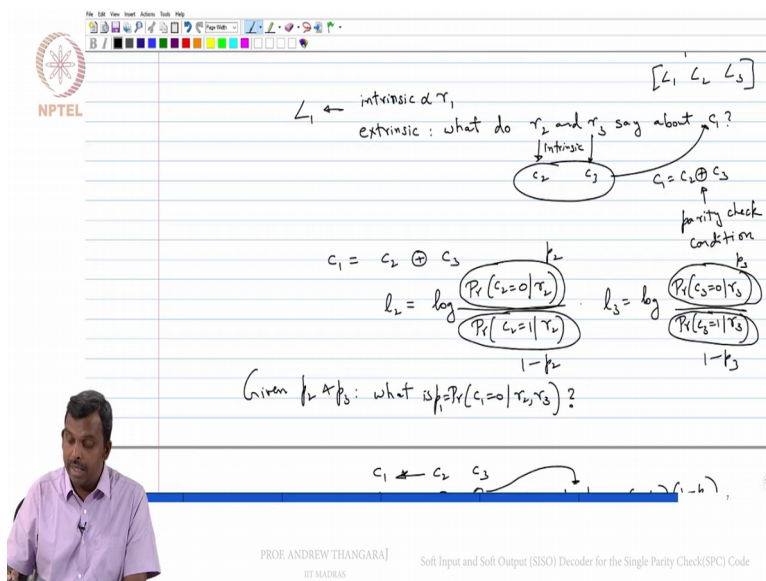 File Edit View Insert Actions Tools Help
Page Width
B I
NPTEL
[L₁ L₂ L₃]
L₁ ← intrinsic ∝ r₁
extrinsic : what do r₂ and r₃ say about c₁?
intrinsic
c₂ c₃
c₁ = c₂ ⊕ c₃
parity check
condition
c₁ = c₂ ⊕ c₃
p₂
p₃
l₂ = log Pr(c₂=0|r₂) / Pr(c₂=1|r₂) . l₃ = log Pr(c₃=0|r₃) / Pr(c₃=1|r₃)
1-p₂
1-p₃
Given p₂ & p₃: what is p₁=Pr(c₁=0|r₂,r₃)?
c₁ ← c₂ c₃
PROF. ANDREW THANGARAJ
IIT MADRAS
Soft Input and Soft Output (SISO) Decoder for the Single Parity Check(SPC) Code